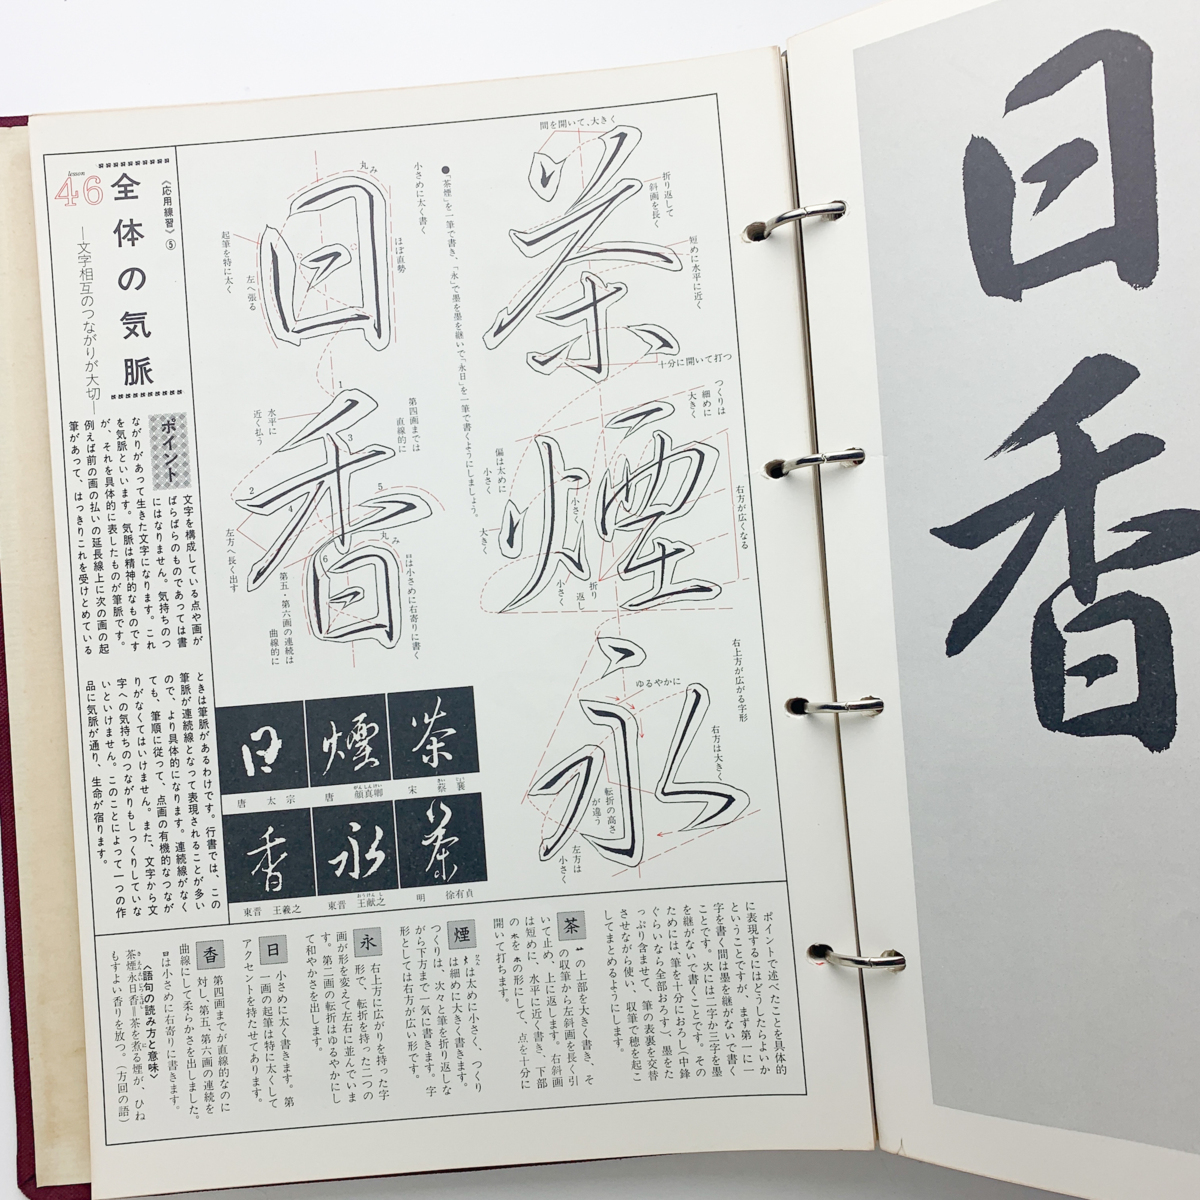 lesson
46
〈応用練習〉⑤
全体の気脈
―文字相互のつながりが大切―
ポイント
文字を構成している点や画が
ばらばらのものであっては書
にはなりません。気持ちのつ
ながりがあって生きた文字になります。これ
を気脈といいます。気脈は精神的なものです
が、それを具体的に表したものが筆脈です。
例えば前の画の払いの延長線上に次の画の起
筆があって、はっきりこれを受けとめている
ときは筆脈があるわけです。行書では、この
筆脈が連続線となって表現されることが多い
ので、より具体的になります。連続線がなく
ても、筆順に従って、点画の有機的なつなが
りがなくてはいけません。また、文字から文
字への気持ちのつながりもしっくりしていな
いといけません。このことによって一つの作
品に気脈が通り、生命が宿ります。
●「茶煙」を一筆で書き、「永」で墨を継いで「永日」を一筆で書くようにしましょう。
茶
間を開いて、大きく
折り返して
斜画を長く
短めに水平に近く
十分に開いて打つ
煙
つくりは
細めに
大きく
偏は太めに
小さく
小さく
大きく
右方が広くなる
折り
返し
小さく
永
右上方が広がる字形
ゆるやかに
右方は大きく
転折の高さ
が違う
左方は
小さく
日
小さめに太く書く
丸み
ほぼ直勢
起筆を特に太く
左へ張る
香
1
2
3
4
5
6
第四画までは
直線的に
水平に
近く払う
左方へ長く出す
丸み
日は小さめに右寄りに書く
第五・第六画の連続は
曲線的に
茶
宋 蔡襄
さい じょう
煙
唐 顔真卿
がんしんけい
日
唐 太宗
茶
明 徐有貞
永
東晋 王献之
おうけんし
香
東晋 王羲之
ポイントで述べたことを具体的
に表現するにはどうしたらよいか
ということですが、まず第一に一
字を書く間は墨を継がないで書く
ことです。次には二字か三字を墨
を継がないで書くことです。その
ためには、筆を十分におろし(中鋒
ぐらいなら全部おろす)、墨をた
っぷり含ませて、筆の表裏を交替
させながら使い、収筆で穂を起こ
してまとめるようにします。
茶
䒑の上部を大きく書き、そ
の収筆から左斜画を長く引
いて止め、上に返します。右斜画
は短めに、水平に近く書き、下部
の木をホの形にして、点を十分に
開いて打ちます。
煙
火は太めに小さく、つくり
は細めに大きく書きます。
つくりは、次々と筆を折り返しな
がら下方まで一気に書きます。字
形としては右方が広い形です。
永
右上方に広がりを持った字
形で、転折を持った二つの
画が形を変えて左右に並んでいま
す。第二画の転折はゆるやかにし
て和やかさを出します。
日
小さめに太く書きます。第
一画の起筆は特に太くして
アクセントを持たせてあります。
香
第四画までが直線的なのに
対し、第五、第六画の連続を
曲線にして柔らかさを出しました。
日は小さめに右寄りに書きます。
〈語句の読み方と意味〉
茶煙永日香=茶を煮る煙が、ひね
もすよい香りを放つ。(方回の語)
日
香